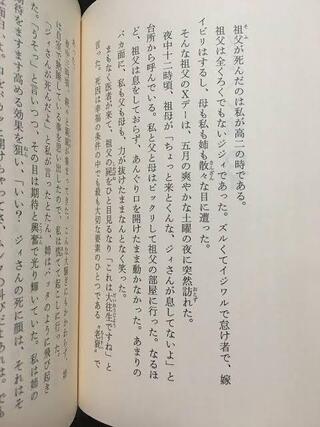 祖父が死んだのは私が高二の時である。
祖父は全くろくでもないジジィであった。ズルくてイジワルで怠け者で、嫁
イビリはするし、母も私も姉も散々な目に遭った。
そんな祖父のXデーは、五月の爽やかな土曜の夜に突然訪れた。
夜中十二時頃、祖母が「ちょっと来とくんな、ジィさんが息してないよ」と
台所から呼んでいる。私と父と母はビックリして祖父の部屋に行った。なるほ
ど、祖父は息をしておらず、あんぐり口を開けたまま動かなかった。あまりの
バカ面に、私も父も母も、力が抜けたままなんとなく笑った。
まもなく医者が来て、祖父の屍をひと目見るなり「これは大往生ですね」と
言った。死因は幸福の条件の中でも最も大切な要素のひとつである〝老衰〟で
「ジィさんが死んだよ」と私が言ったとたん、姉はバッタのように飛び起き
た。「うそっ」と言いつつ、その目は期待と興奮で光り輝いていた。私は姉の
待をますます高める効果を狙い、「いい?　ジィさんの死に顔は、それはそ